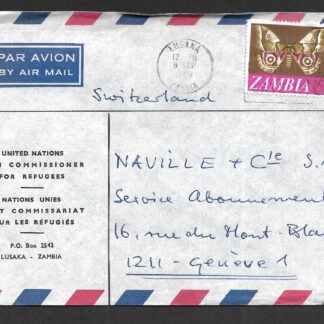 PAR AVION
BY AIR MAIL
LUSAKA
12
9 SEP
ZAMBIA
ZAMBIA
Switzerland
UNITED NATIONS
COMMISSIONER
FOR REFUGEES
NATIONS UNIES
T COMMISSARIAT
UR LES RÉFUGIÉS
P.O. Box 2542
LUSAKA - ZAMBIA
NAVILLE + Cie S.
Service Abonnement
16, rue du Mont-Bla
1211 - Genève 1